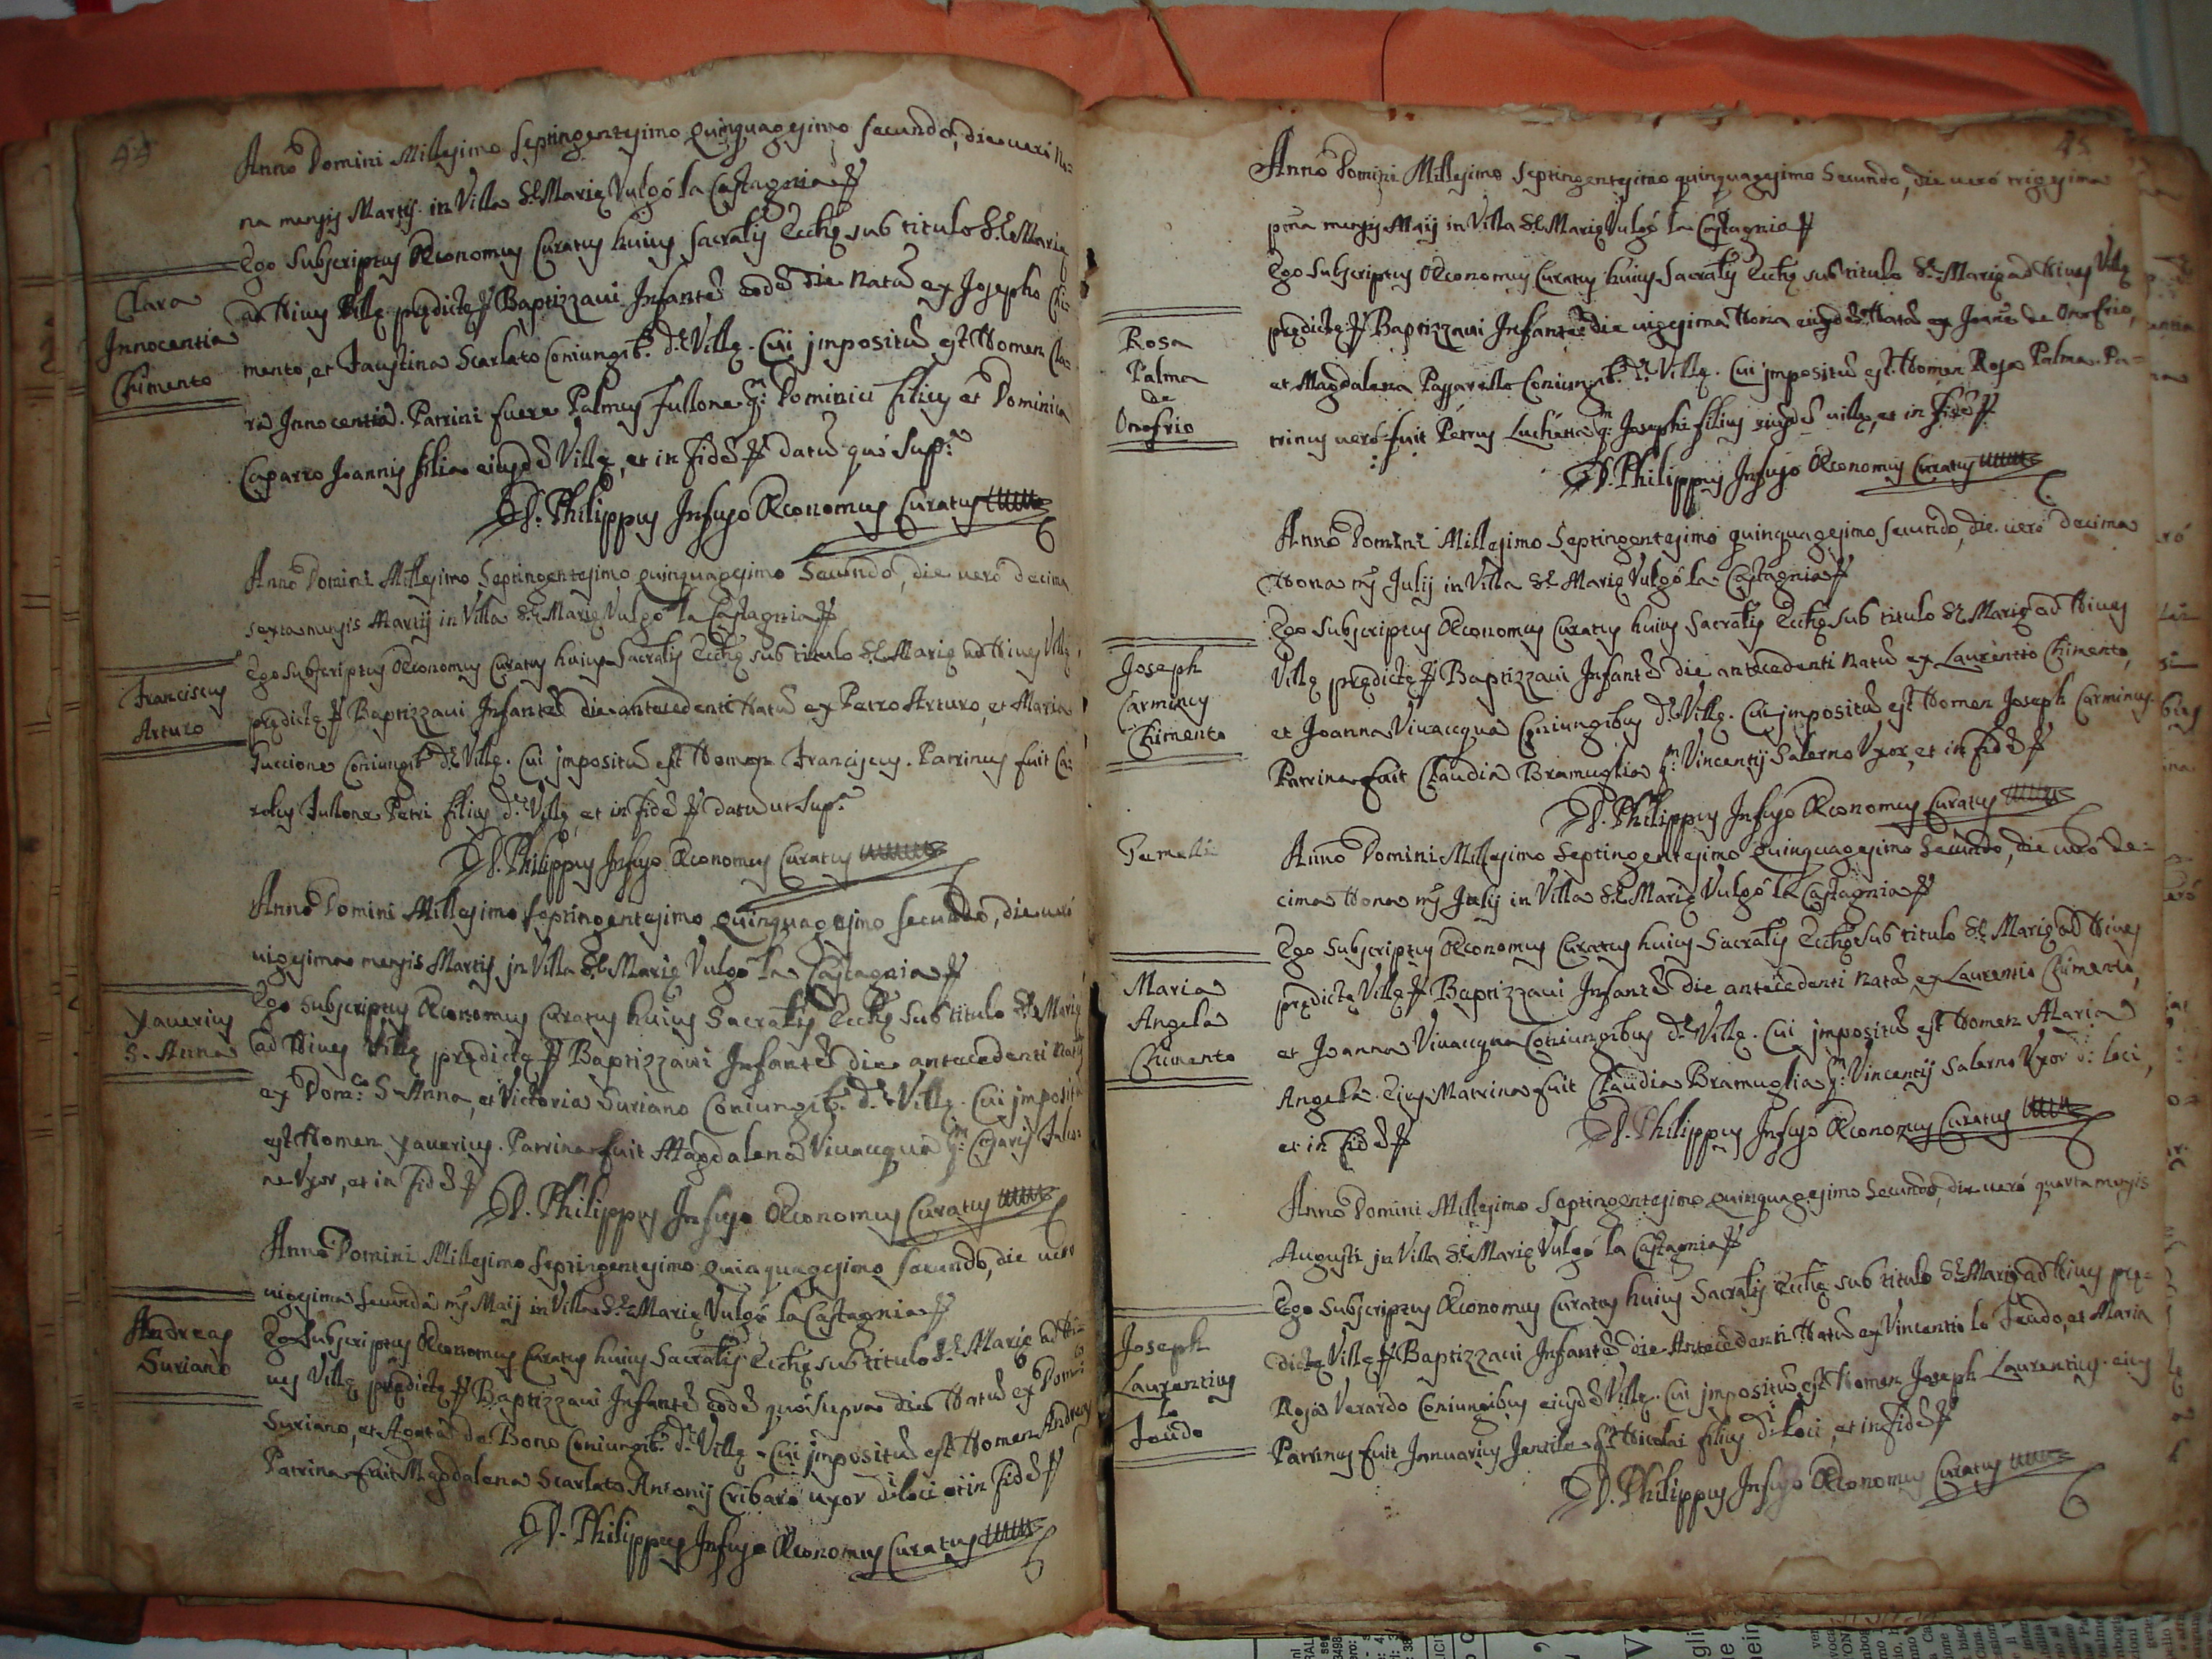 44
Anno Domini Millesimo Septingentesimo quinquagesimo secundo, die vero no=
na mensis Martij in Villa S.ę Marię Vulgò la Castagnia
Ego Subscriptus Œconomus Curatus huius Sacralis Ecclię sub titulo S.ę Marię
ad Nives Villę prędictę Baptizzavi Infantē eodē die natū ex Josepho Chi=
mento, et Faustina Scarlato Coniungib.s d.ę Villę. Cui impositū est Nomen Cla=
ra Innocentia. Patrini fuere Palmus Fullone q.m Dominici filius et Dominica
Caparro Joannis filia eiusdē Villę, et in fidē datū quō sup.a
D. Philippus Infuso Œconomus Curatus
Clara
Innocentia
Chimento
Anno Domini Millesimo Septingentesimo quinquagesimo Secundo, die verò decima
sexta mensis Martij in Villa S.ę Marię Vulgò la Castagnia
Ego Subscriptus Œconomus Curatus huius Sacralis Ecclię sub titulo S.ę Marię ad Nives Villę
prędictę Baptizzavi Infantē die antecedenti Natū ex Petro Arturo, et Maria
Fuccione Coniungib.s d.ę Villę. Cui impositū est Nomen Franciscus. Patrinus fuit Ca=
rolus Fullone Petri filius d.ę Villę, et in fidē datū ut sup.a
D. Philippus Infuso Œconomus Curatus
Franciscus
Arturo
Anno Domini Millesimo Septingentesimo Quinquagesimo secundo, die verò
vigesima mensis Martij in Villa S.ę Marię Vulgò la Castagnia
Ego Subscriptus Œconomus Curatus huius Sacralis Ecclię sub titulo S.ę Marię
ad Nives Villę prędictę Baptizzavi Infantē die antecedenti Natū
ex Dom.co S. Anna, et Victoria Suriano Coniungib.s d.ę Villę. Cui impositū
est Nomen Xaverius. Patrina fuit Magdalena Vivacqua q.m Cęsaris Fulo=
ne Uxor, et in fidē
D. Philippus Infuso Œconomus Curatus
Xaverius
S. Anna
Anno Domini Millesimo Septingentesimo quinquagesimo secundo, die vero
vigesima secunda m̄s Maij in Villa S.ę Marię Vulgò la Castagnia
Ego Subscriptus Œconomus Curatus huius Sacralis Ecclię sub titulo S.ę Marię ad Ni=
ves Villę prędictę Baptizzavi Infantē eodē quo supra die Natū ex Domi.co
Suriano, et Agata de Bono Coniungib.s d.ę Villę. Cui impositū est Nomen Andreas
Patrina fuit Magdalena Scarlato Antonij Cribarò uxor d.i loci et in fidē
D. Philippus Infuso Œconomus Curatus
Andreas
Suriano
45
Anno Domini Millesimo Septingentesimo quinquagesimo Secundo, die verò trigesima
p̄ma mensis Maij in Villa S.ę Marię Vulgò la Castagnia
Ego Subscriptus Œconomus Curatus huius Sacralis Ecclię sub titulo S.ę Marię ad Nives Villę
prędictę Baptizzavi Infantē die vigesima Nona eiusdē Natū ex Joāne de Onofrio,
et Magdalena Passarello Coniungib.s d.ę Villę. Cui impositū est Nomen Rosa Palma. Pa=
trinus verò fuit Petrus Luchetta q.m Josephi filius eiusdē villę, et in fidē
D. Philippus Infuso Œconomus Curatus
Rosa
Palma
de
Onofrio
Anno Domini Millesimo Septingentesimo quinquagesimo secundo, die verò decima
Nona m̄s Julij in Villa S.ę Marię Vulgò la Castagnia
Ego Subscriptus Œconomus Curatus huius Sacralis Ecclię sub titulo S.ę Marię ad Nives
Villę prędictę Baptizzavi Infantē die antecedenti Natū ex Laurentio Chimento,
et Joanna Vivacqua Coniungibus d.ę Villę. Cui impositū est Nomen Joseph Carminus.
Patrina fuit Claudia Bramuglia q.m Vincentij Salerno Uxor, et in fidē
D. Philippus Infuso Œconomus Curatus
Joseph
Carminus
Chimento
Gemelli
Anno Domini Millesimo Septingentesimo Quinquagesimo Secundo, die verò de=
cima Nona m̄s Julij in Villa S.ę Marię Vulgò la Castagnia
Ego Subscriptus Œconomus Curatus huius Sacralis Ecclię sub titulo S.ę Marię ad Nives
prędictę Villę Baptizzavi Infantē die antecedenti Natū ex Laurentio Chimento,
et Joanna Vivacqua Coniungibus d.ę Villę. Cui impositū est Nomen Maria
Angela. Eius Matrina fuit Claudia Bramuglia q.m Vincentij Salerno Uxor d.i loci,
et in fidē
D. Philippus Infuso Œconomus Curatus
Maria
Angela
Chimento
Anno Domini Millesimo Septingentesimo quinquagesimo Secundo, die verò quarta mensis
Augusti in Villa S.ę Marię Vulgò la Castagnia
Ego Subscriptus Œconomus Curatus huius Sacralis Ecclię sub titulo S.ę Marię ad Nives prę=
dictę Villę Baptizzavi Infantē die Antecedenti Natū ex Vincentio lo Feudo, et Maria
Rosa Verardo Coniungibus eiusdē Villę. Cui impositū est Nomen Joseph Laurentius. eius
Patrinus fuit Januarius Jentile q.m Nicolai filius d.i loci, et in fidē
D. Philippus Infuso Œconomus Curatus
Joseph
Laurentius
lo
Feudo